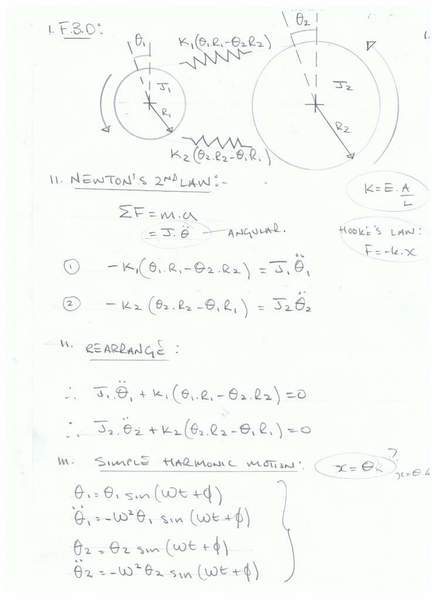 1. F.B.D:
θ₁
K₁(θ₁R₁-θ₂R₂)
θ₂
J₁
R₁
J₂
R₂
K₂(θ₂.R₂-θ₁R₁)
11. NEWTON'S 2ND LAW:-
K=E.A/L
ΣF=m.a
=J.θ̈ ANGULAR.
HOOKE'S LAW:
F=-k.x
① -K₁(θ₁.R₁-θ₂.R₂) = J₁θ̈₁
② -K₂(θ₂.R₂-θ₁R₁) = J₂θ̈₂
11. REARRANGE:
∴ J₁.θ̈₁+K₁(θ₁.R₁-θ₂.R₂)=0
∴ J₂.θ̈₂+K₂(θ₂.R₂-θ₁R₁)=0
111. SIMPLE HARMONIC MOTION:
θ₁=θ₁ sin(ωt+ϕ)
θ̈₁=-ω²θ₁ sin(ωt+ϕ)
θ₂=θ₂ sin(ωt+ϕ)
θ̈₂=-ω²θ₂ sin(ωt+ϕ)